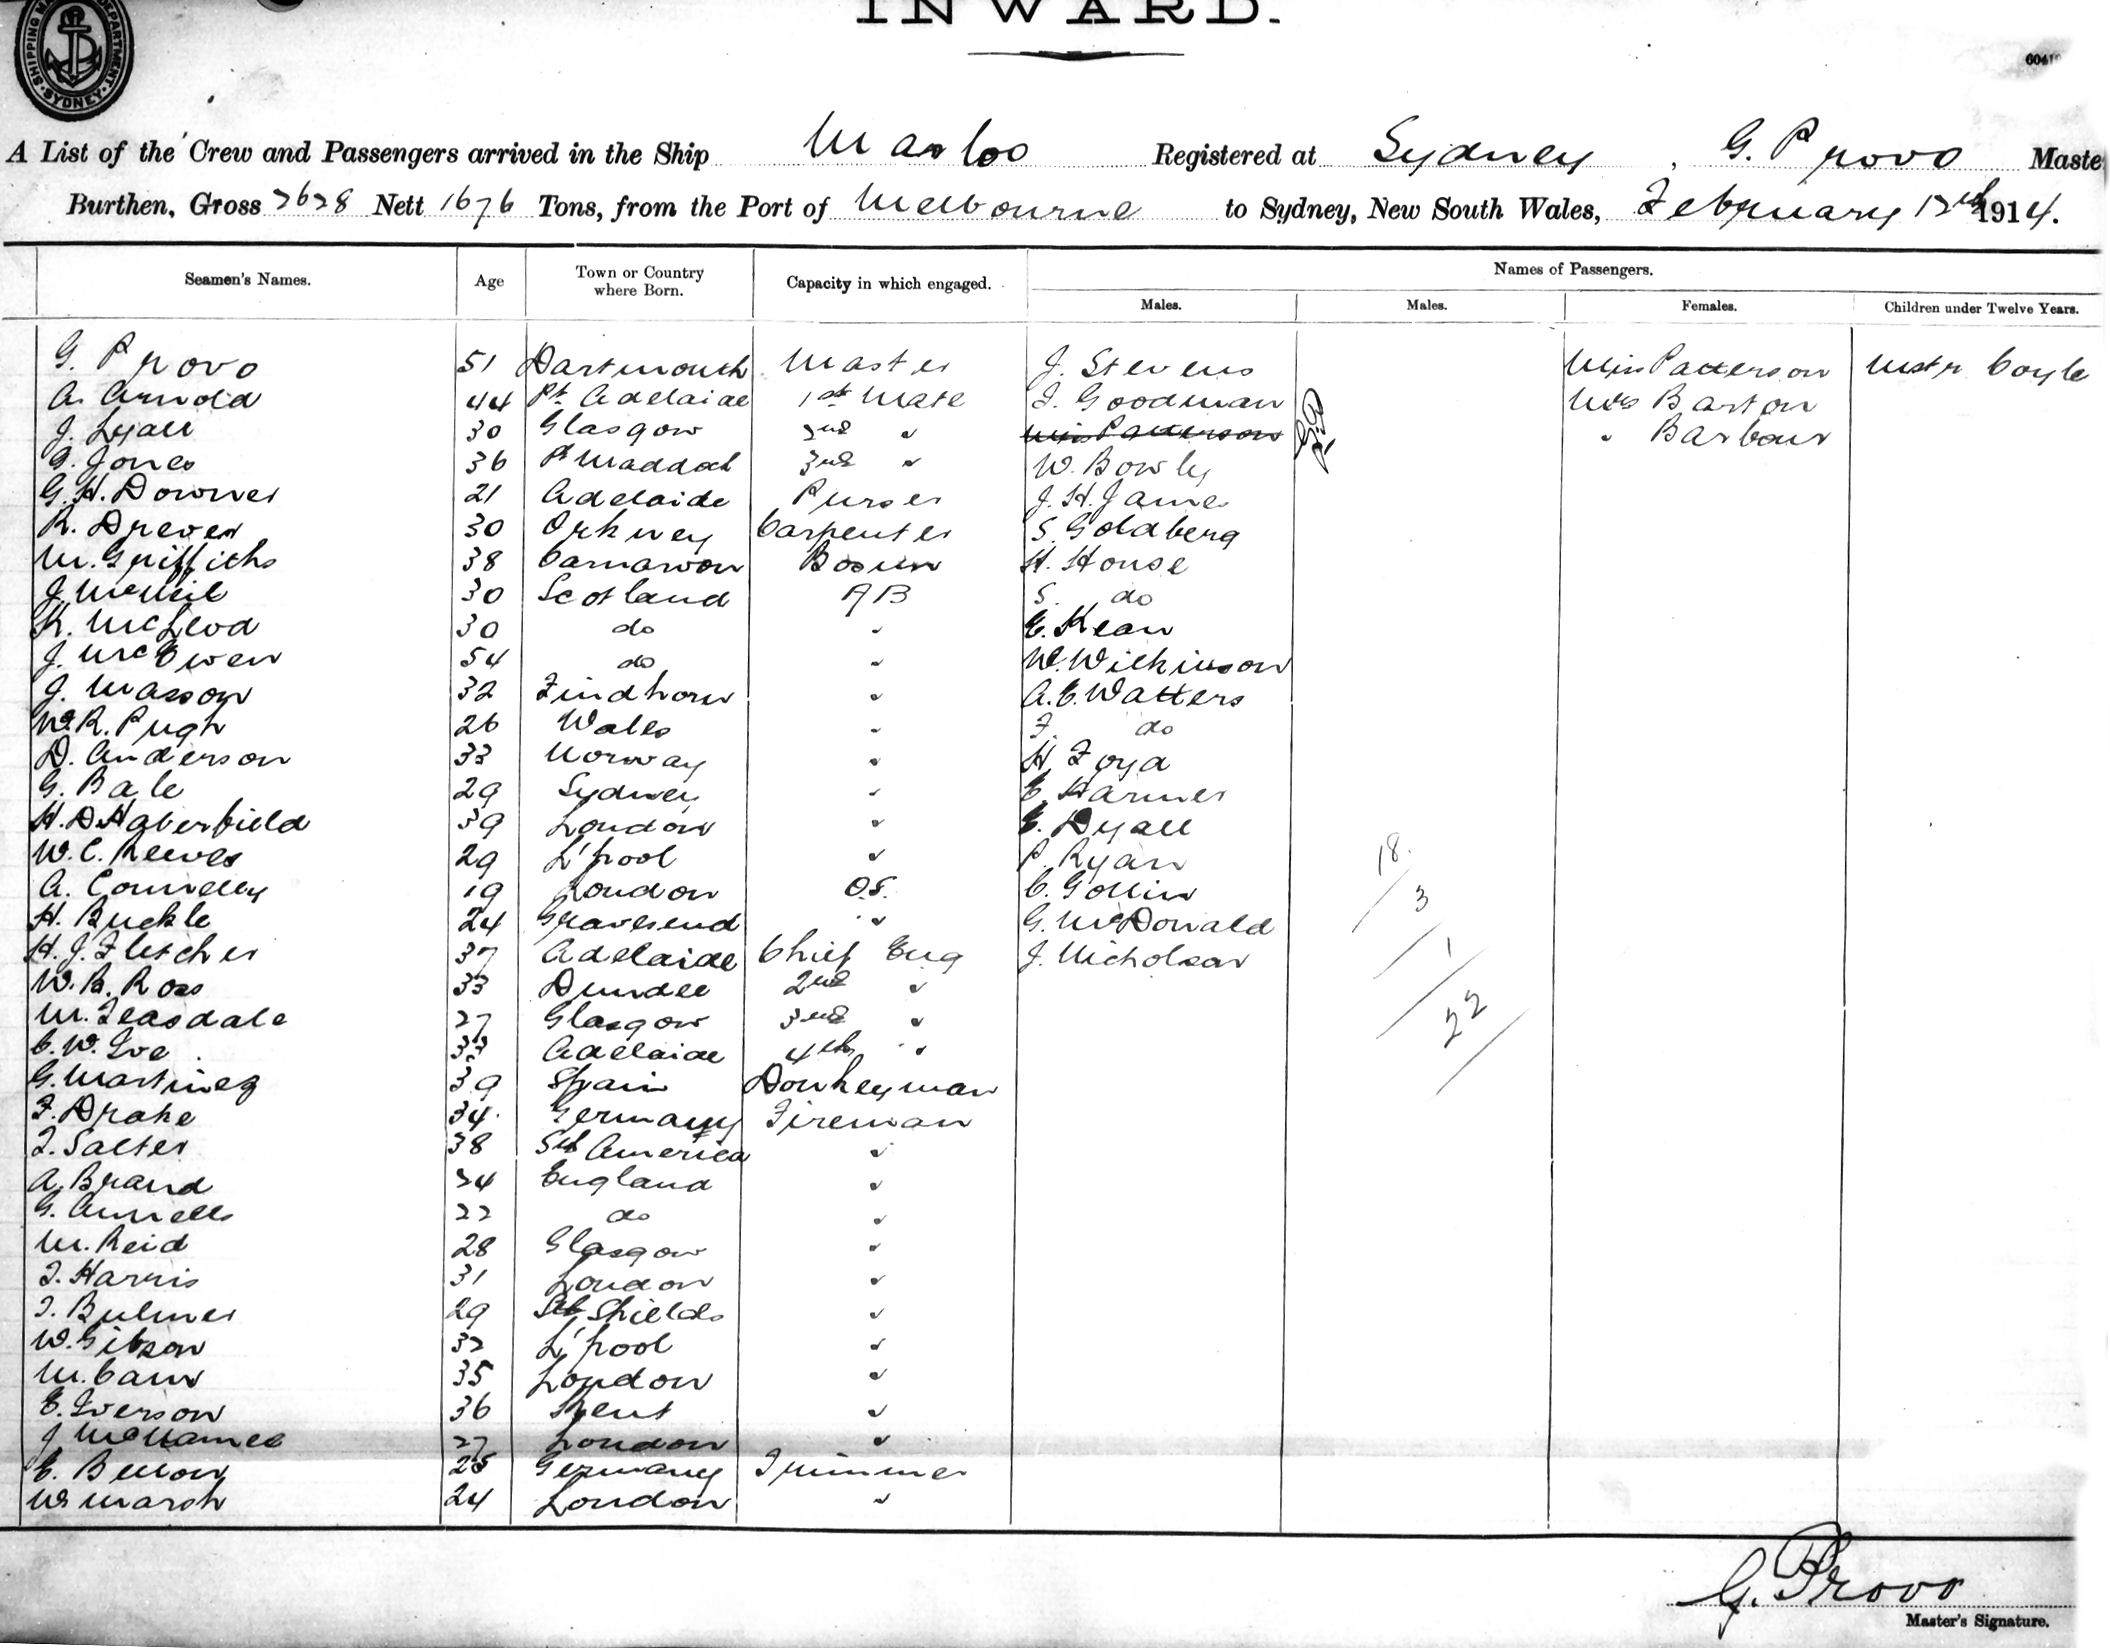 SHIPPING MASTER'S DEPARTMENT SYDNEY
INWARD.
A List of the Crew and Passengers arrived in the Ship Marloo Registered at Sydney, G. Provo Master
Burthen, Gross 2628 Nett 1676 Tons, from the Port of Melbourne to Sydney, New South Wales, February 12th 1914.
Seamen's Names. Age Town or Country where Born. Capacity in which engaged. Names of Passengers.
Males. Males. Females. Children under Twelve Years.
G. Provo 51 Dartmouth Master J. Stevens Miss Patterson Mstr Coyle
A. Arnold 44 Pt. Adelaide 1st Mate J. Goodman Mrs Barton
J. Lyall 30 Glasgow 2nd " Miss Patterson " Barbour
G. Jones 36 Pt Maddock 3rd " W. Bowly
G. H. Downer 21 Adelaide Purser J. H. James
R. Drever 30 Orkney Carpenter S. Goldberg
M. Griffiths 38 Carnarvon Bosun H. House
J. McNeil 30 Scotland AB S. do
K. McLeod 30 do " E. Kean
J. McEwen 54 do " W. Wilkinson
J. Masson 32 Findhorn " A. E. Watters
W. R. Pugh 26 Wales " F. do
D. Anderson 33 Norway " H. Foyd
G. Bale 29 Sydney " E. Harmer
H. D. Haberfield 39 London " E. Dyall
W. C. Reeves 29 L'pool " P. Ryan 18.
A. Connelly 19 London O.S. C. Gollin 3
H. Buckle 24 Gravesend " G. McDonald
H. J. Fletcher 37 Adelaide Chief Eng J. Nicholson 1
W. B. Ross 33 Dundee 2nd " 22
M. Teasdale 27 Glasgow 3rd "
C. W. Ive 33 Adelaide 4th "
G. Martinez 39 Spain Donkeyman
F. Drake 34 Germany Fireman
J. Salter 38 Sth America "
A. Brand 24 England "
G. Annells 22 do "
M. Reid 28 Glasgow "
J. Harris 31 London "
J. Bulmer 29 Sth Shields "
W. Gibson 32 L'pool "
M. Cann 35 London "
E. Iverson 36 Kent "
J McNamee 27 London "
E. Bellon 25 Germany Trimmer
W. Marsh 24 London "
G. Provo
Master's Signature.